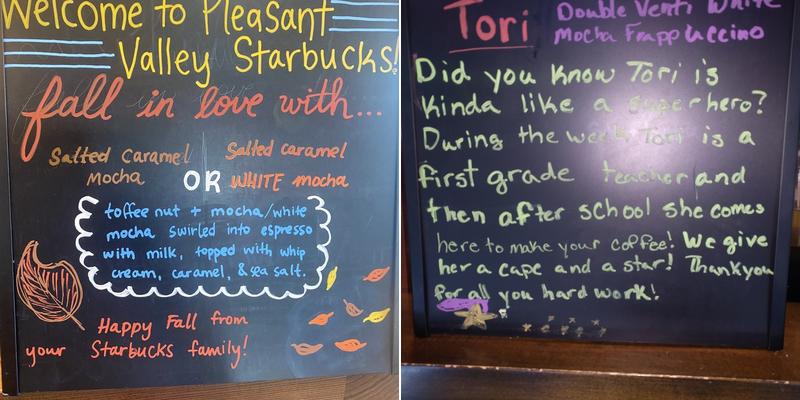 Welcome to Pleasant
Valley Starbucks!
fall in love with...
Salted Caramel
Mocha
OR
Salted caramel
WHITE mocha
toffee nut + mocha/white
mocha swirled into espresso
with milk, topped with whip
cream, caramel, & sea salt.
Happy Fall from
your Starbucks family!
Tori
Double Venti White
Mocha Frappuccino
Did you know Tori is
kinda like a superhero?
During the week Tori is a
first grade teacher and
then after school she comes
here to make your coffee! We give
her a cape and a star! Thankyou
for all you hard work!